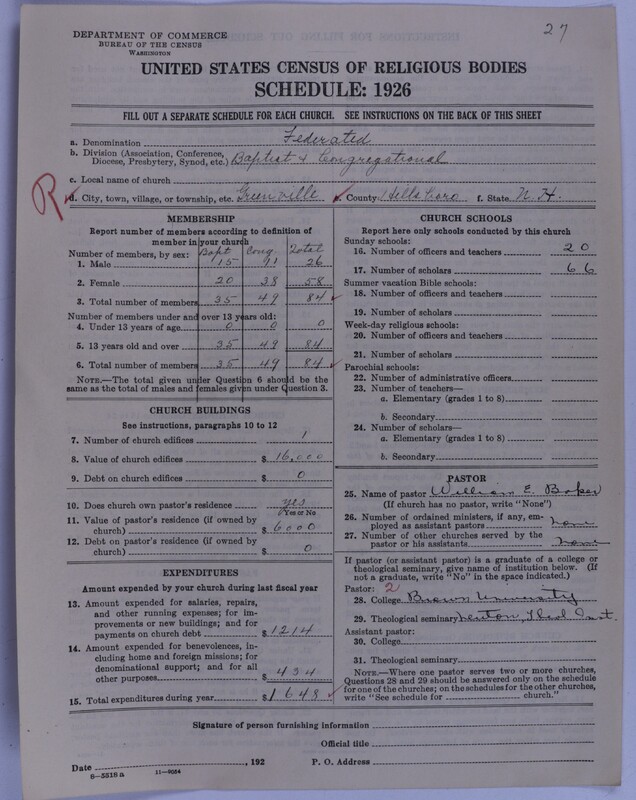 27
DEPARTMENT OF COMMERCE
BUREAU OF THE CENSUS
WASHINGTON
UNITED STATES CENSUS OF RELIGIOUS BODIES
SCHEDULE: 1926
FILL OUT A SEPARATE SCHEDULE FOR EACH CHURCH. SEE INSTRUCTIONS ON THE BACK OF THIS SHEET
a. Denomination Federated
b. Division (Association, Conference, Diocese, Presbytery, Synod, etc.) Baptist & Congregational
c. Local name of church
R
d. City, town, village, or township, etc. Greenville e. County Hillsboro f. State N. H.
MEMBERSHIP
Report number of members according to definition of
member in your church
Number of members, by sex: Bapt Cong Total
1. Male 15 11 26
2. Female 20 38 58
3. Total number of members 35 49 84
Number of members under and over 13 years old:
4. Under 13 years of age 0 0 0
5. 13 years old and over 35 49 84
6. Total number of members 35 49 84
NOTE.—The total given under Question 6 should be the
same as the total of males and females given under Question 3.
CHURCH BUILDINGS
See instructions, paragraphs 10 to 12
7. Number of church edifices 1
8. Value of church edifices $ 16,000
9. Debt on church edifices $ 0
10. Does church own pastor's residence yes
Yes or No
11. Value of pastor's residence (if owned by
church) $ 6000
12. Debt on pastor's residence (if owned by
church) $ 0
EXPENDITURES
Amount expended by your church during last fiscal year
13. Amount expended for salaries, repairs,
and other running expenses; for im-
provements or new buildings; and for
payments on church debt $ 1214
14. Amount expended for benevolences, in-
cluding home and foreign missions; for
denominational support; and for all
other purposes $ 434
15. Total expenditures during year $ 1648
CHURCH SCHOOLS
Report here only schools conducted by this church
Sunday schools:
16. Number of officers and teachers 20
17. Number of scholars 66
Summer vacation Bible schools:
18. Number of officers and teachers
19. Number of scholars
Week-day religious schools:
20. Number of officers and teachers
21. Number of scholars
Parochial schools:
22. Number of administrative officers
23. Number of teachers—
a. Elementary (grades 1 to 8)
b. Secondary
24. Number of scholars—
a. Elementary (grades 1 to 8)
b. Secondary
PASTOR
25. Name of pastor William E. Baker
(If church has no pastor, write "None")
26. Number of ordained ministers, if any, em-
ployed as assistant pastors none
27. Number of other churches served by the
pastor or his assistants none
If pastor (or assistant pastor) is a graduate of a college or
theological seminary, give name of institution below. (If
not a graduate, write "No" in the space indicated.)
Pastor: 2
28. College Brown University
29. Theological seminary Newton Theol Inst.
Assistant pastor:
30. College
31. Theological seminary
NOTE.—Where one pastor serves two or more churches,
Questions 28 and 29 should be answered only on the schedule
for one of the churches; on the schedules for the other churches,
write "See schedule for church."
Signature of person furnishing information
Official title
Date , 192 P. O. Address
8—5518a 11—9054